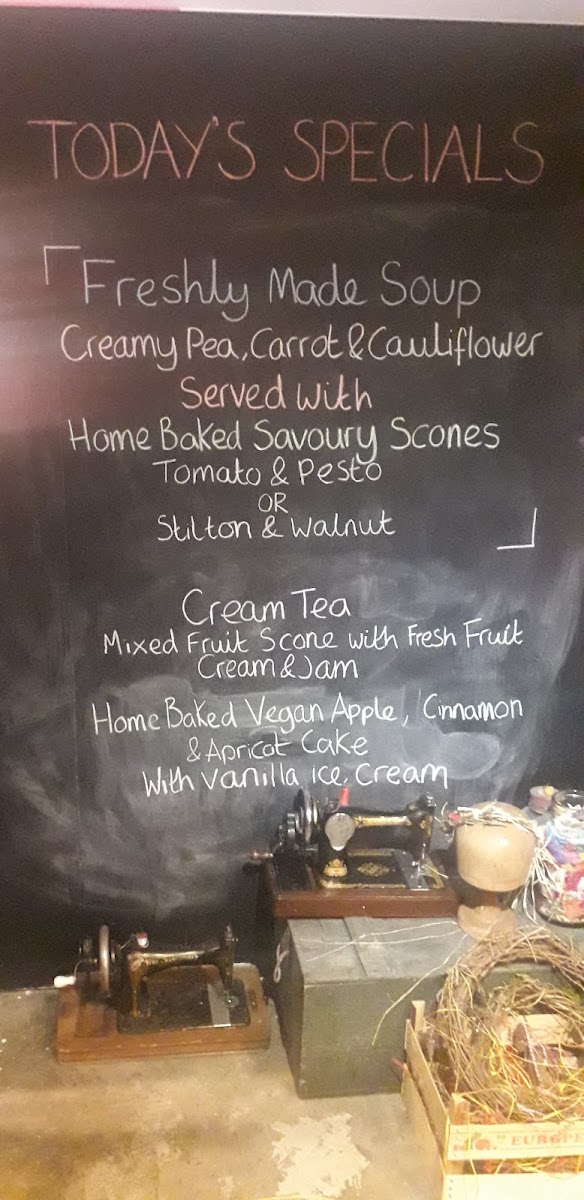 TODAY'S SPECIALS
Freshly Made Soup
Creamy Pea, Carrot & Cauliflower
Served with
Home Baked Savoury Scones
Tomato & Pesto
OR
Stilton & Walnut
Cream Tea
Mixed Fruit Scone with Fresh Fruit
Cream & Jam
Home Baked Vegan Apple, Cinnamon
& Apricot Cake
With Vanilla ice Cream